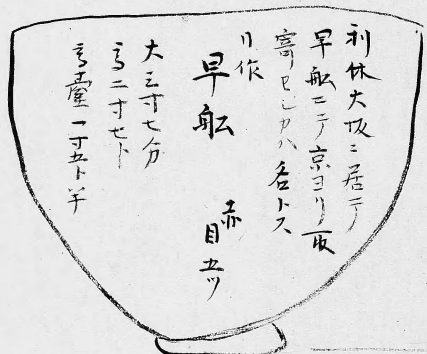 利休大坂ニ居テ
早舩ニテ京ヨリ取
寄セシカハ名トス
リ作
早舩
赤
目五ツ
大三寸七分
高二寸七卜
高臺一寸五卜半